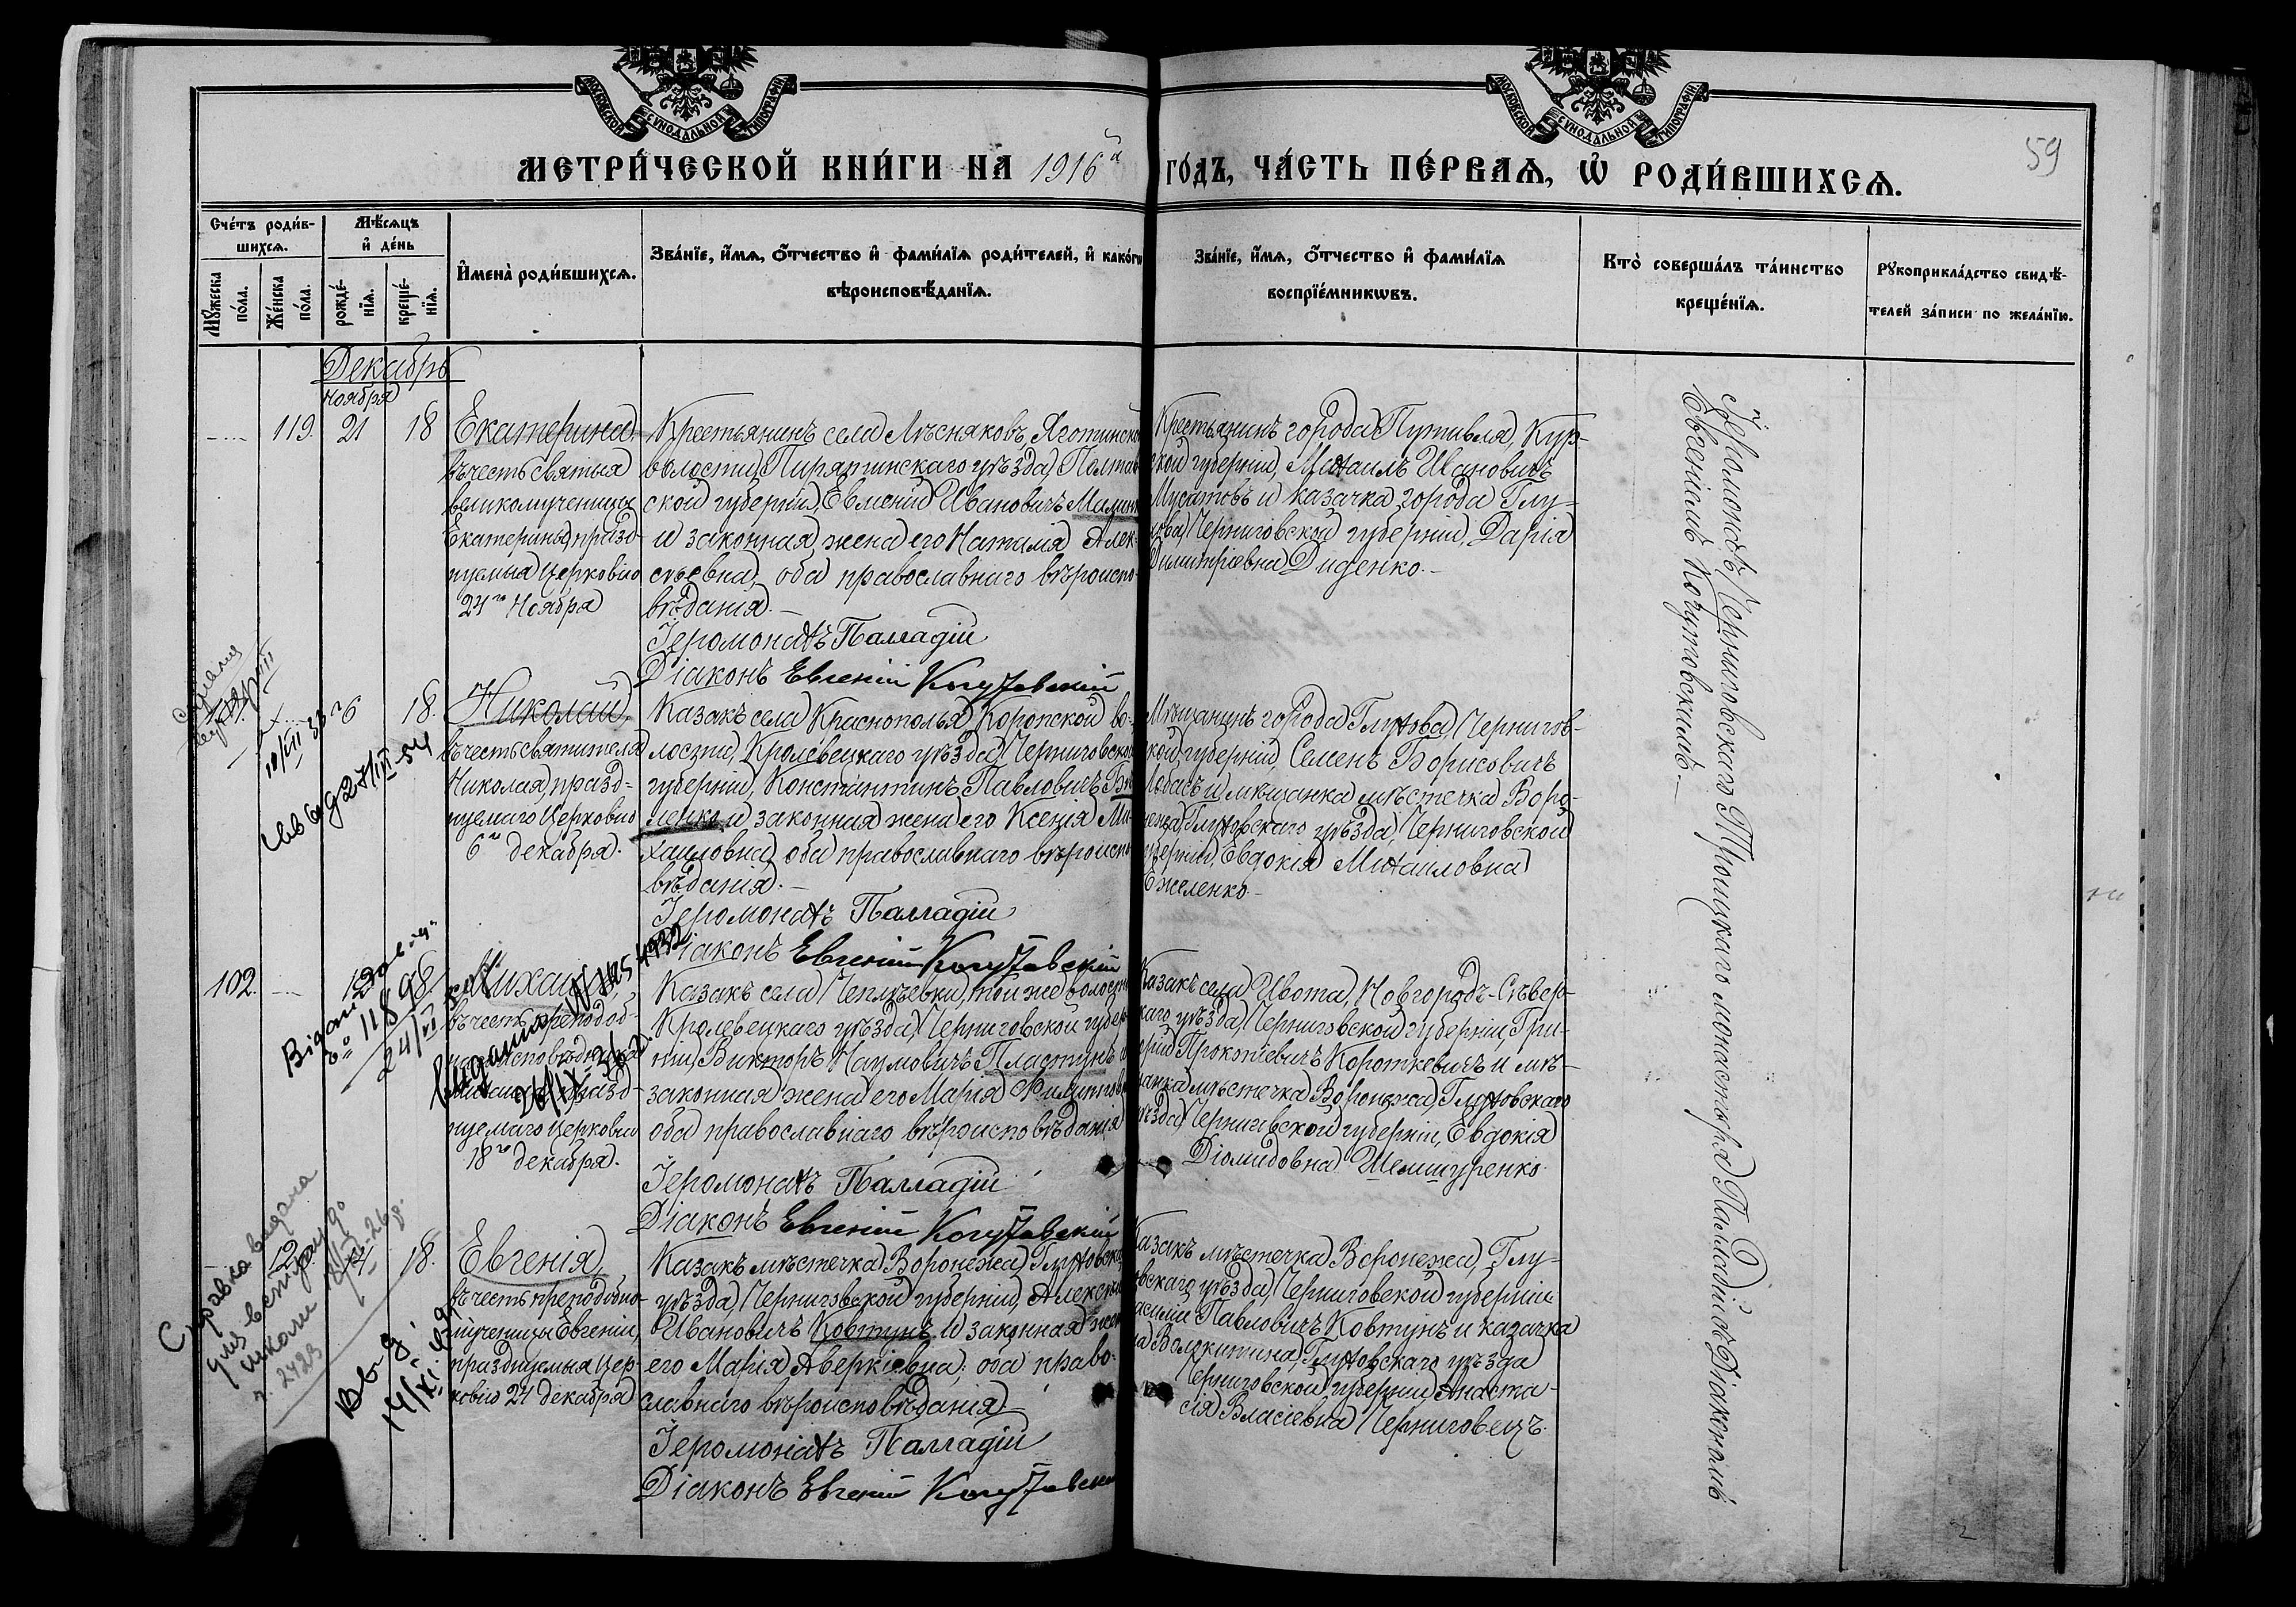 МОСКОВСКОЙ СѴНОДАЛЬНОЙ ТИПОГРАФІИ
МОСКОВСКОЙ СѴНОДАЛЬНОЙ ТИПОГРАФІИ
МЕТРИ́ЧЕСКОЙ КНИ́ГИ НА 1916й
ГО́ДЪ, ЧА́СТЬ ПЕ́РВАѦ, Ѡ РОДИ́ВШИХСѦ.
59
Сче́тъ роди́в-
шихсѧ.
Мꙋжеска по́ла.
Же́нска по́ла.
Мѣ́сѧцъ
и҆ де́нь
рожде́-
нїѧ.
креще́-
нїѧ.
И҆мена̀ роди́вшихсѧ.
Зва́нїе, и҆́мѧ, ѻ҆́тчество и҆ фами́лїѧ роди́телей, и҆ како́гѡ
вѣроисповѣ́данїѧ.
Зва́нїе, и҆́мѧ, ѻ҆́тчество и҆ фами́лїѧ
воспрїе́мникѡвъ.
Кто̀ соверша́лъ та́инство
креще́нїѧ.
Рꙋкоприкла́дство свидѣ́-
телей за́писи по жела́нїю.
Декабрь
Ноября
119. 21 18
Екатерина
въ честь Святыя
великомученицы
Екатерины, празд-
нуемыя Церковію
24го Ноября
Крестьянинъ села Лѣсняковъ, Яготинской
волости, Пирятинскаго уѣзда, Полтав-
ской губерніи, Евменій Ивановичъ
и законная жена его Наталія Алек-
сѣевна, оба православнаго вѣроиспо-
вѣданія.
Іеромонахъ Палладій
Діаконъ Евгеній Когутовскій
Крестьянинъ города Путивля, Кур-
ской губерніи, Михаилъ Ивановичъ
Мусатовъ и казачка города Глу-
хова, Черниговской губерніи, Дарія
Димитріевна Диденко.
18.
Николай,
въ честь святителя
Николая, празд-
нуемаго Церковію
6го декабря.
Казакъ села Краснополья, Коропской во-
лости, Кролевецкаго уѣзда, Черниговской
губерніи, Константинъ Павловичъ
и законная жена его Ксенія Ми-
хаиловна, оба православнаго вѣроиспо-
вѣданія.
Іеромонахъ Палладій
Діаконъ Евгеній Когутовскій
Мѣщанинъ города Глухова, Чернигов-
ской губерніи, Семенъ Борисовичъ
и мѣщанка мѣстечка Воро-
нежа, Глуховскаго уѣзда, Черниговской
губерніи, Евдокія Михаиловна
102.
Михаилъ,
въ честь преподоб-
18го декабря.
Казакъ села Чеплѣевки, той же волости,
Кролевецкаго уѣзда, Черниговской губер-
ніи, Викторъ Наумовичъ Пластунъ и
законная жена его Марія Филиппов
оба православнаго вѣроисповѣданія
Іеромонахъ Палладій
Діаконъ Евгеній Когутовскій
Казакъ села Ивота, Новгородъ-Сѣвер-
скаго уѣзда, Черниговской губерніи, Гри-
горій Прокопіевичъ Короткевичъ и мѣ-
щанка мѣстечка Воронежа, Глуховскаго
уѣзда, Черниговской губерніи, Евдокія
Діомидовна Шемшуренко.
18.
Евгенія,
въ честь преподобно-
мученицы Евгеніи,
празднуемыя Цер-
ковію 24 декабря
Казакъ мѣстечка Воронежа, Глуховскаго
уѣзда, Черниговской губерніи, Алексѣй
Ивановичъ Ковтунъ и законная жена
его Марія Аверкіевна, оба право-
славнаго вѣроисповѣданія
Іеромонахъ Палладій
Діаконъ Евгеній Когутовскій
Казакъ мѣстечка Воронежа, Глу-
ховскаго уѣзда, Черниговской губерніи
Василій Павловичъ Ковтунъ и казачка
Волокитина, Глуховскаго уѣзда
Черниговской губерніи Анаста-
сія Власіевна Черниговецъ.
Іеромонахъ Черниговскаго Троицкаго монастыря Палладій съ Діакономъ
Евгеніемъ Когутовскимъ.
Справка видана